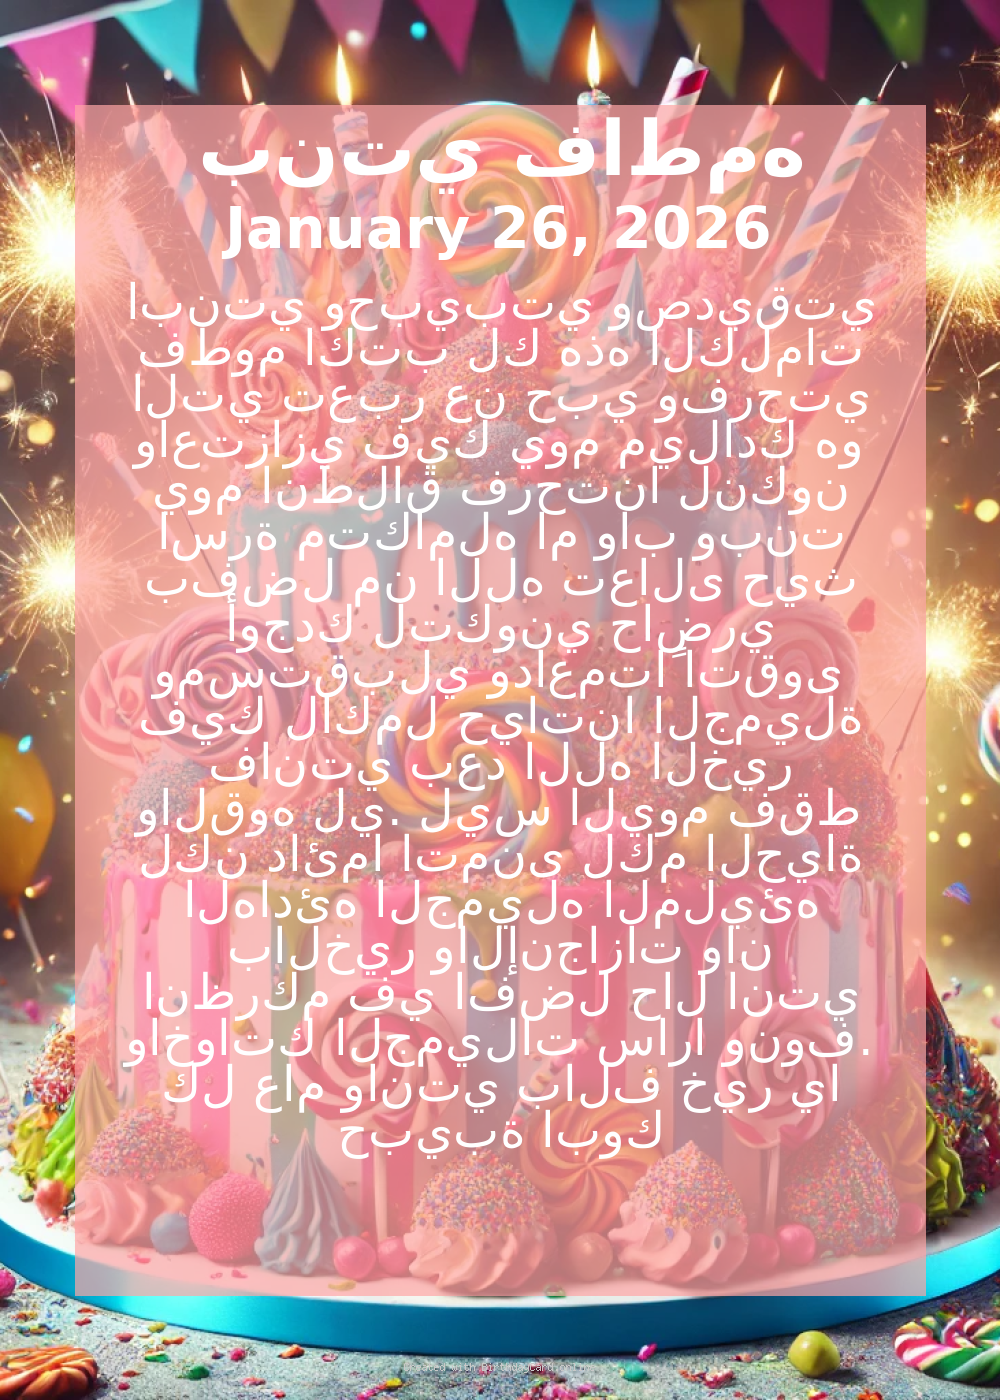 بنتي فاطمه
January 26, 2026
ابنتي وحبيبتي وصديقتي
فطوم اكتب لك هذه الكلمات
التي تعبر عن حبي وفرحتي
واعتزازي فيك يوم ميلادك هو
يوم انطلاق فرحتنا لنكون
اسرة متكامله ام واب وبنت
بفضل من الله تعالى حيث
أوجدك لتكوني حاضري
ومستقبلي وداعمتاً اتقوى
فيك لاكمل حياتنا الجميلة
فانتي بعد الله الخير
والقوه لي. ليس اليوم فقط
لكن دائما اتمنى لكم الحياة
الهادئه الجميله المليئه
بالخير والإنجازات وان
انظركم في افضل حال انتي
واخواتك الجميلات سارا ونوف.
كل عام وانتي بالف خير يا
حبيبة ابوك
Created with